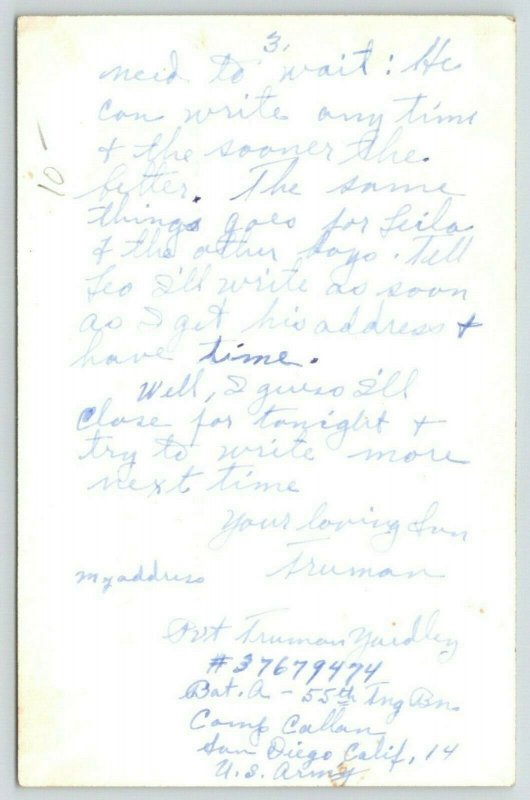 3.
need to wait: He
can write any time
& the sooner the
better. The same
things goes for Leila
& the other boys. Tell
Leo I'll write as soon
as I get his address &
have time.
Well, I guess I'll
close for tonight &
try to write more
next time
Your loving Son
Truman
My address
Pvt Truman Yardley
#37679474
Bat. A - 55th Tng Bn.
Camp Callan
San Diego Calif, 14
U.S. Army
10-